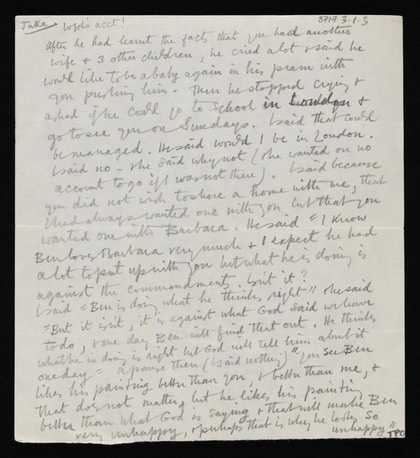 Jake Wife's acct! 8717.3.1.3
After he had learnt the facts that you had another
wife & 3 other children, he cried alot & said he
would like to be a baby again in his pram with
you pushing him. Then he stopped crying &
asked if he could go to school in London &
go to see you on Sundays. I said that could
be managed. He said would I be in London.
I said no – He said why not (he wanted on no
account to go if I was not there). I said because
you did not wish to share a home with me, that
I had always wanted one with you but that you
wanted one with Barbara. He said "I know
Ben loves Barbara very much & I expect he had
a lot to put up with you but what he is doing is
against the commandments. Isn't it?
I said "Ben is doing what he thinks right" He said
"But it isn't, it is against what God said we have
to do, & one day Ben will find that out. He thinks
what he is doing is right but God will tell him about it
one day" a pause then (I said nothing) "you see Ben
likes his painting better than you, & better than me, &
that does not matter but he likes his painting
better than what God is saying & that will make Ben
very unhappy, & perhaps that is why he looks so
unhappy"